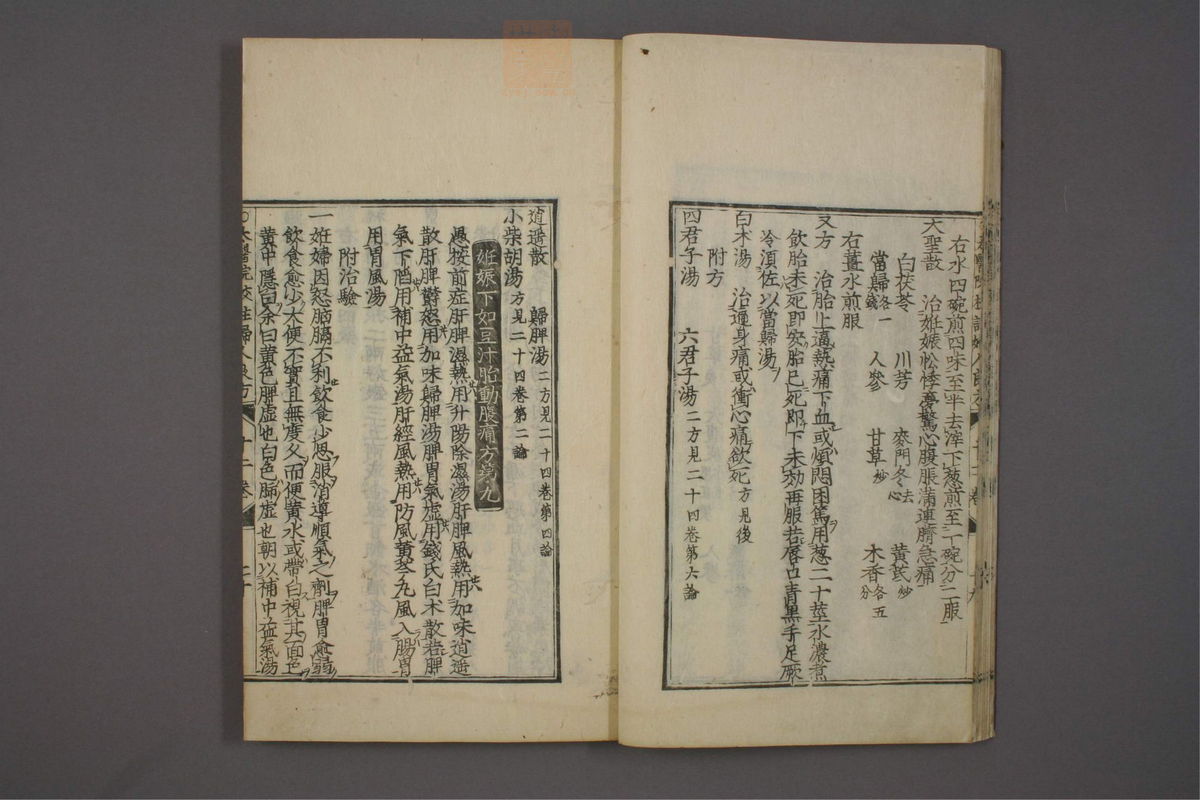 右水四碗煎四味至半去滓下葱煎至一碗分二服
大聖散　治姙娠忪悸夢驚心腹脹滿連臍急痛
白茯苓　川芎　麥門冬去心　黃芪炒
當歸各一錢　人參　甘草炒　木香各五分
右薑水煎服
又方　治胎上逼熱痛下血或煩悶困篤用葱二十莖水濃煮
飲胎未死即安胎已死即下未効再服若唇口青黑手足厥
冷須佐以當歸湯
白木湯　治遍身痛或衝心痛欲死方見後
附方
四君子湯　六君子湯二方見二十四卷第六論
逍遥散　歸脾湯二方見二十四卷第四論
小柴胡湯方見二十四卷第二論
姙娠下如豆汁胎動腹痛方第九
愚按前症肝脾濕熱用升陽除濕湯肝脾風熱用加味逍遥
散肝脾欝怒用加味歸脾湯脾胃氣虛用錢氏白木散若脾
氣下陷用補中益氣湯肝經風熱用防風黃芩丸風入腸胃
用胃風湯
附治驗
一姙婦因怒胸膈不利飲食少思服消導順氣之劑脾胃愈弱
飲食愈少大便不實且無度久而便黃水或帶白視其面色
黃中隱白余曰黃色脾虛也白色肺虛也朝以補中益氣湯
十二卷　二十